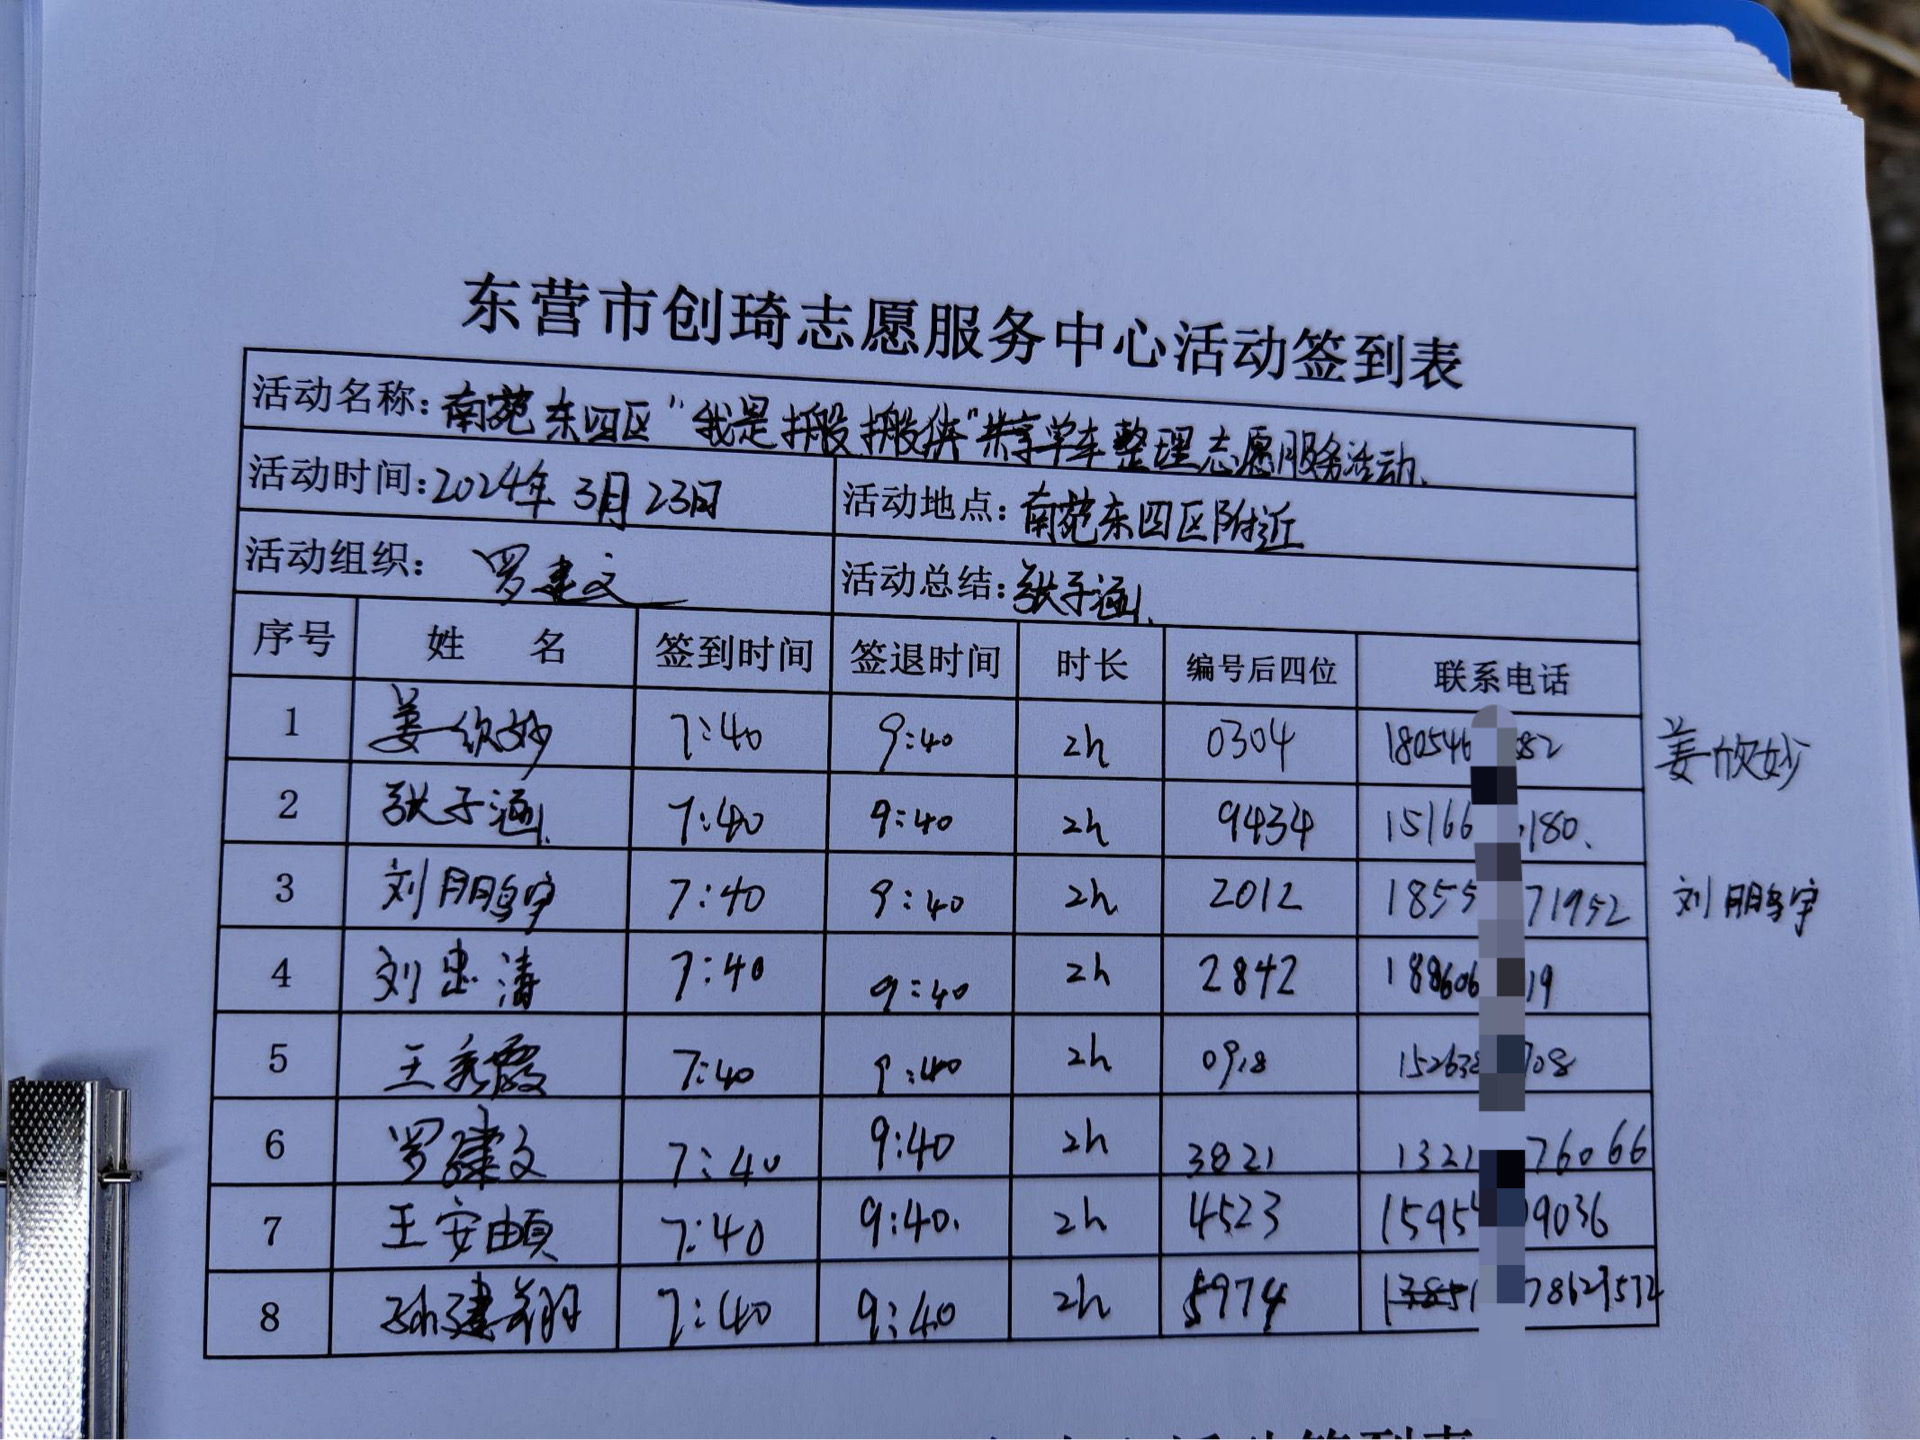 东营市创琦志愿服务中心活动签到表
活动名称：南苑东四区“我是搬搬侠”共享单车整理志愿服务活动.
活动时间：2024年3月23日 活动地点：南苑东四区附近
活动组织：罗建文 活动总结：张子涵
序号 姓 名 签到时间 签退时间 时长 编号后四位 联系电话
1 姜欣妙 7:40 9:40 2h 0304 180546 82 姜欣妙
2 张子涵 7:40 9:40 2h 9434 15166 180.
3 刘鹏宇 7:40 9:40 2h 2012 1855 71952 刘鹏宇
4 刘忠涛 7:40 9:40 2h 2842 188606 19
5 王秀霞 7:40 9:40 2h 0918 152638 708
6 罗建文 7:40 9:40 2h 3821 1321 76066
7 王安頔 7:40 9:40. 2h 4523 1595 9036
8 孙建翔 7:40 9:40 2h 5974